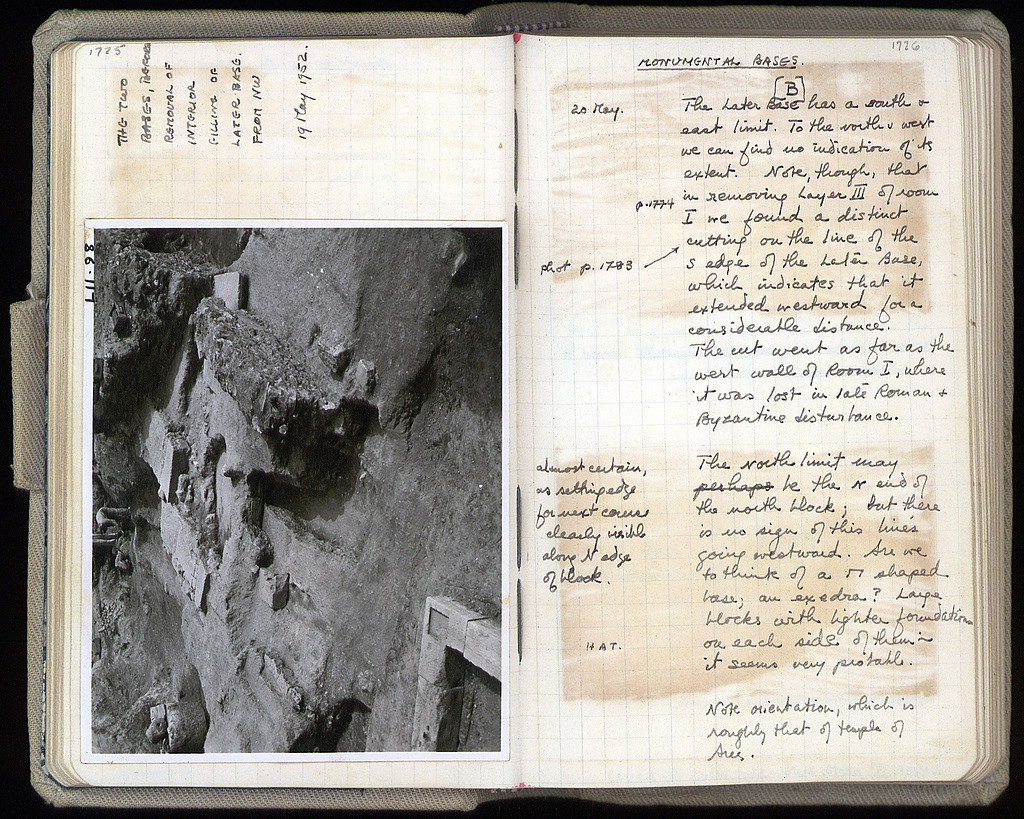 1725
THE TWO
BASES, BEFORE
REMOVAL OF
INTERIOR
FILLING OF
LATER BASE.
FROM NW
19 May 1952.
86·117
1726
MONUMENTAL BASES.
[B]
20 May.
The Later Base has a south &
east limit. To the north & west
we can find no indication of its
extent. Note, though, that
p. 1774
in removing Layer III of room
I we found a distinct
cutting on the line of the
phot p. 1783
S edge of the Later Base,
which indicates that it
extended westward for a
considerable distance.
The cut went as far as the
west wall of Room I, where
it was lost in late Roman +
Byzantine disturbance.
almost certain,
as setting edge
for next course
clearly visible
along N edge
of block.
HAT.
The North limit may
perhaps be the N end of
the north block; but there
is no sign of this line's
going westward. Are we
to think of a ⊓ shaped
base; an exedra? Large
blocks with lighter foundation
on each side of them –
it seems very probable.
Note orientation, which is
roughly that of temple of
Ares.